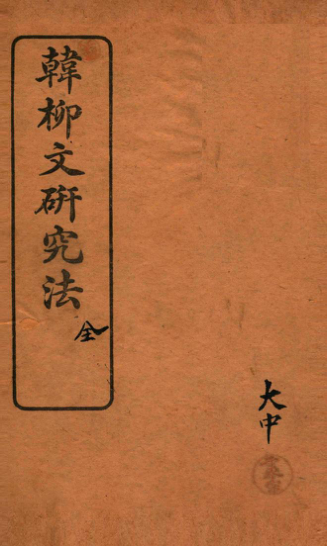 韓柳文研究法
全
大中